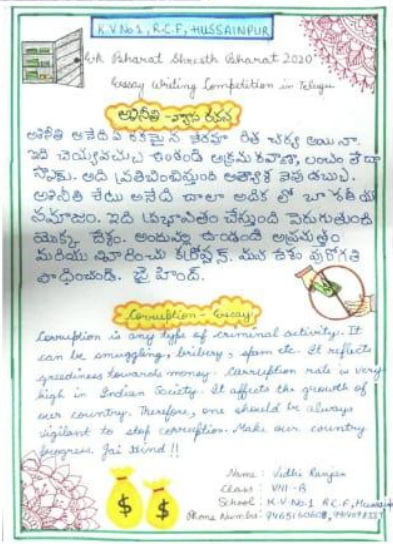 K.V No 1, R.C.F, HUSSAINPUR
Ek Bharat Shresth Bharat 2020
Essay Writing Competition in Telugu
అవినీతి - వ్యాస రచన
అవినీతి అనేది ఏ రకమైన నేరపూరిత చర్య అయినా.
ఇది చెయ్యవచ్చు ఉండండి అక్రమ రవాణా, లంచం లేదా
స్పామ్. అది ప్రతిబింబిస్తుంది అత్యాశ వైపు డబ్బు.
అవినీతి రేటు అనేది చాలా అధిక లో భారతీయ
సమాజం. ఇది ప్రభావితం చేస్తుంది పెరుగుతుంది
యొక్క దేశం. అందువల్ల ఉండండి అప్రమత్తం
మరియు నివారించు కరోప్షన్. మన దేశం పురోగతి
సాధించండి. జై హింద్.
Corruption - Essay
Corruption is any type of criminal activity. It
can be smuggling, bribery, spam etc. It reflects
greediness towards money. Corruption rate is very
high in Indian Society. It affects the growth of
our country. Therefore, one should be always
vigilant to stop corruption. Make our country
progress Jai Hind !!
Name : Vidhi Ranjan
Class : VIII - B
School : K.V. No. 1 R.C.F, Hussain
Phone Number :